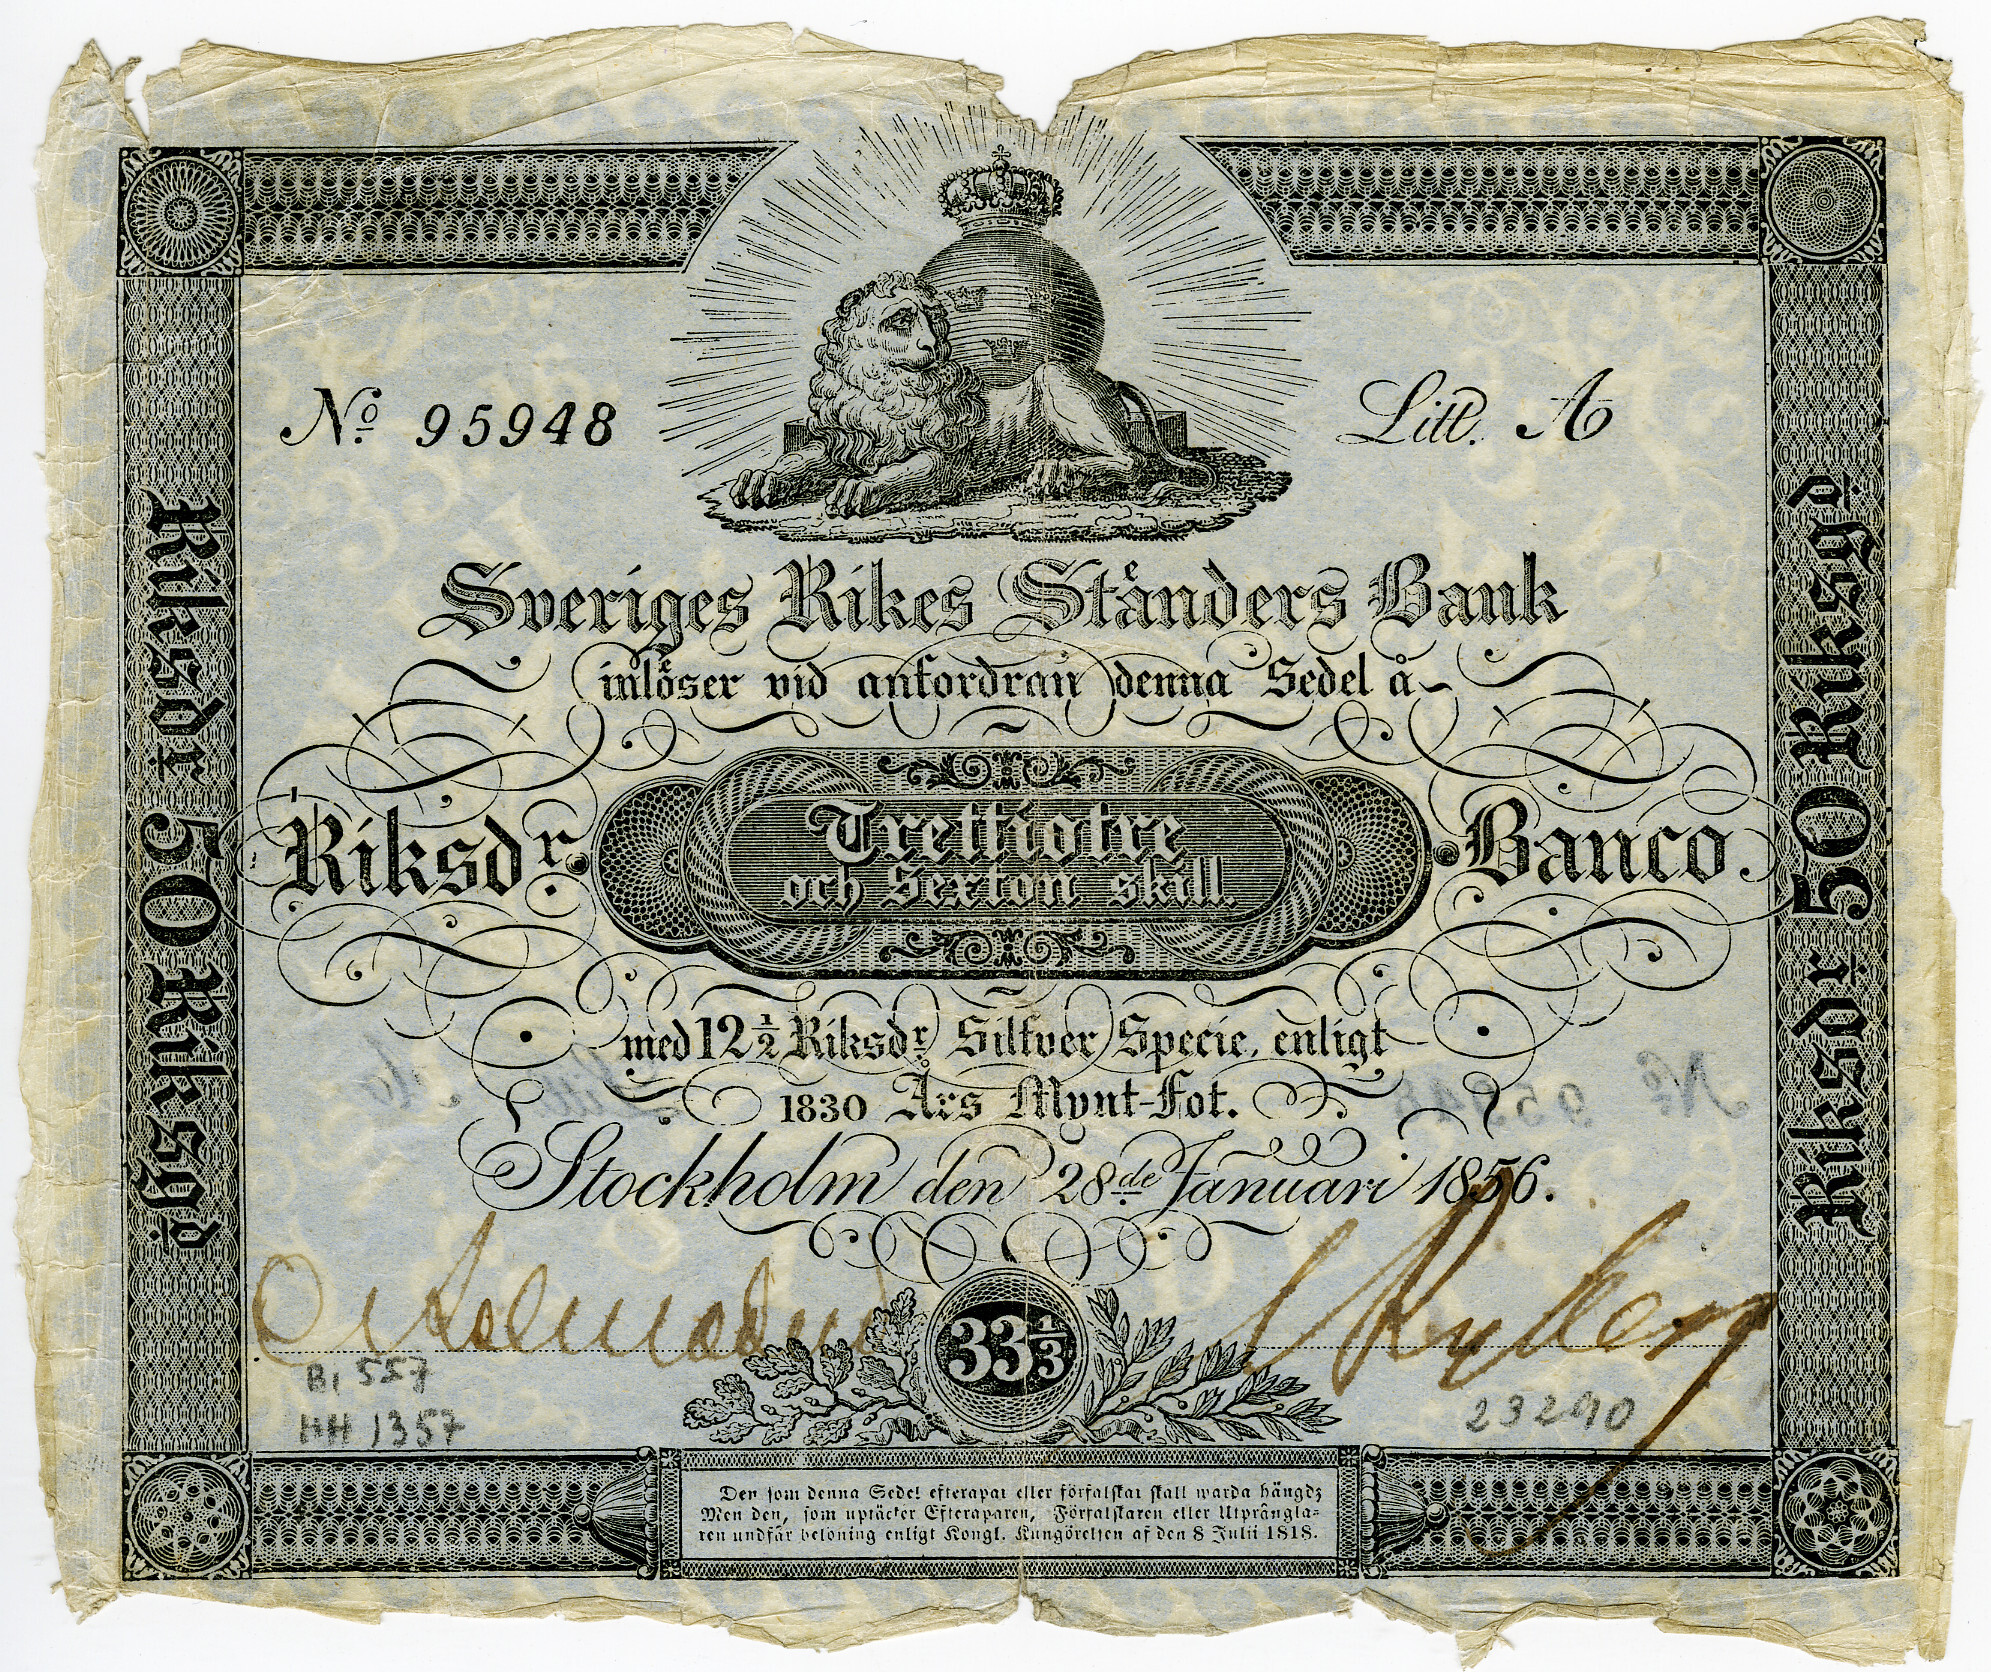 No 95948
Litt. A
Sveriges Rikes Ständers Bank
inlöser vid anfordran denna Sedel å
Riksdr. Trettiotre Banco.
och Sexton skill.
med 12 1/2 Riksdr Silfver Specie, enligt
1830 Års Mynt-Fot.
Stockholm den 28de Januari 1856.
Ryberg
33 1/3
B1 557
HH 1357
23290
Den som denna Sedel efterapar eller förfalskar skall warda hängd;
Men den, som uptäcker Efteraparen, Förfalskaren eller Utprångla-
ren undfår belöning enligt Kongl. Kungörelsen af den 8 Julii 1818.
Riksdr 50 Riksgd
Riksdr 50 Riksgd
No 95948
Litt. A